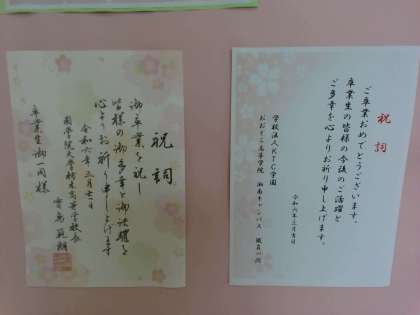 祝詞
ご卒業おめでとうございます。
卒業生の皆様の今後のご活躍と
ご多幸を心よりお祈り申し上げます。
令和六年三月吉日
学校法人KTC学園
おおぞら高等学院 湘南キャンパス 職員一同
祝詞
御卒業を祝し
皆様の御多幸と御活躍を
心よりお祈り申し上げます
令和六年三月一日
國學院大學栃木高等学校長
卒業生御一同様